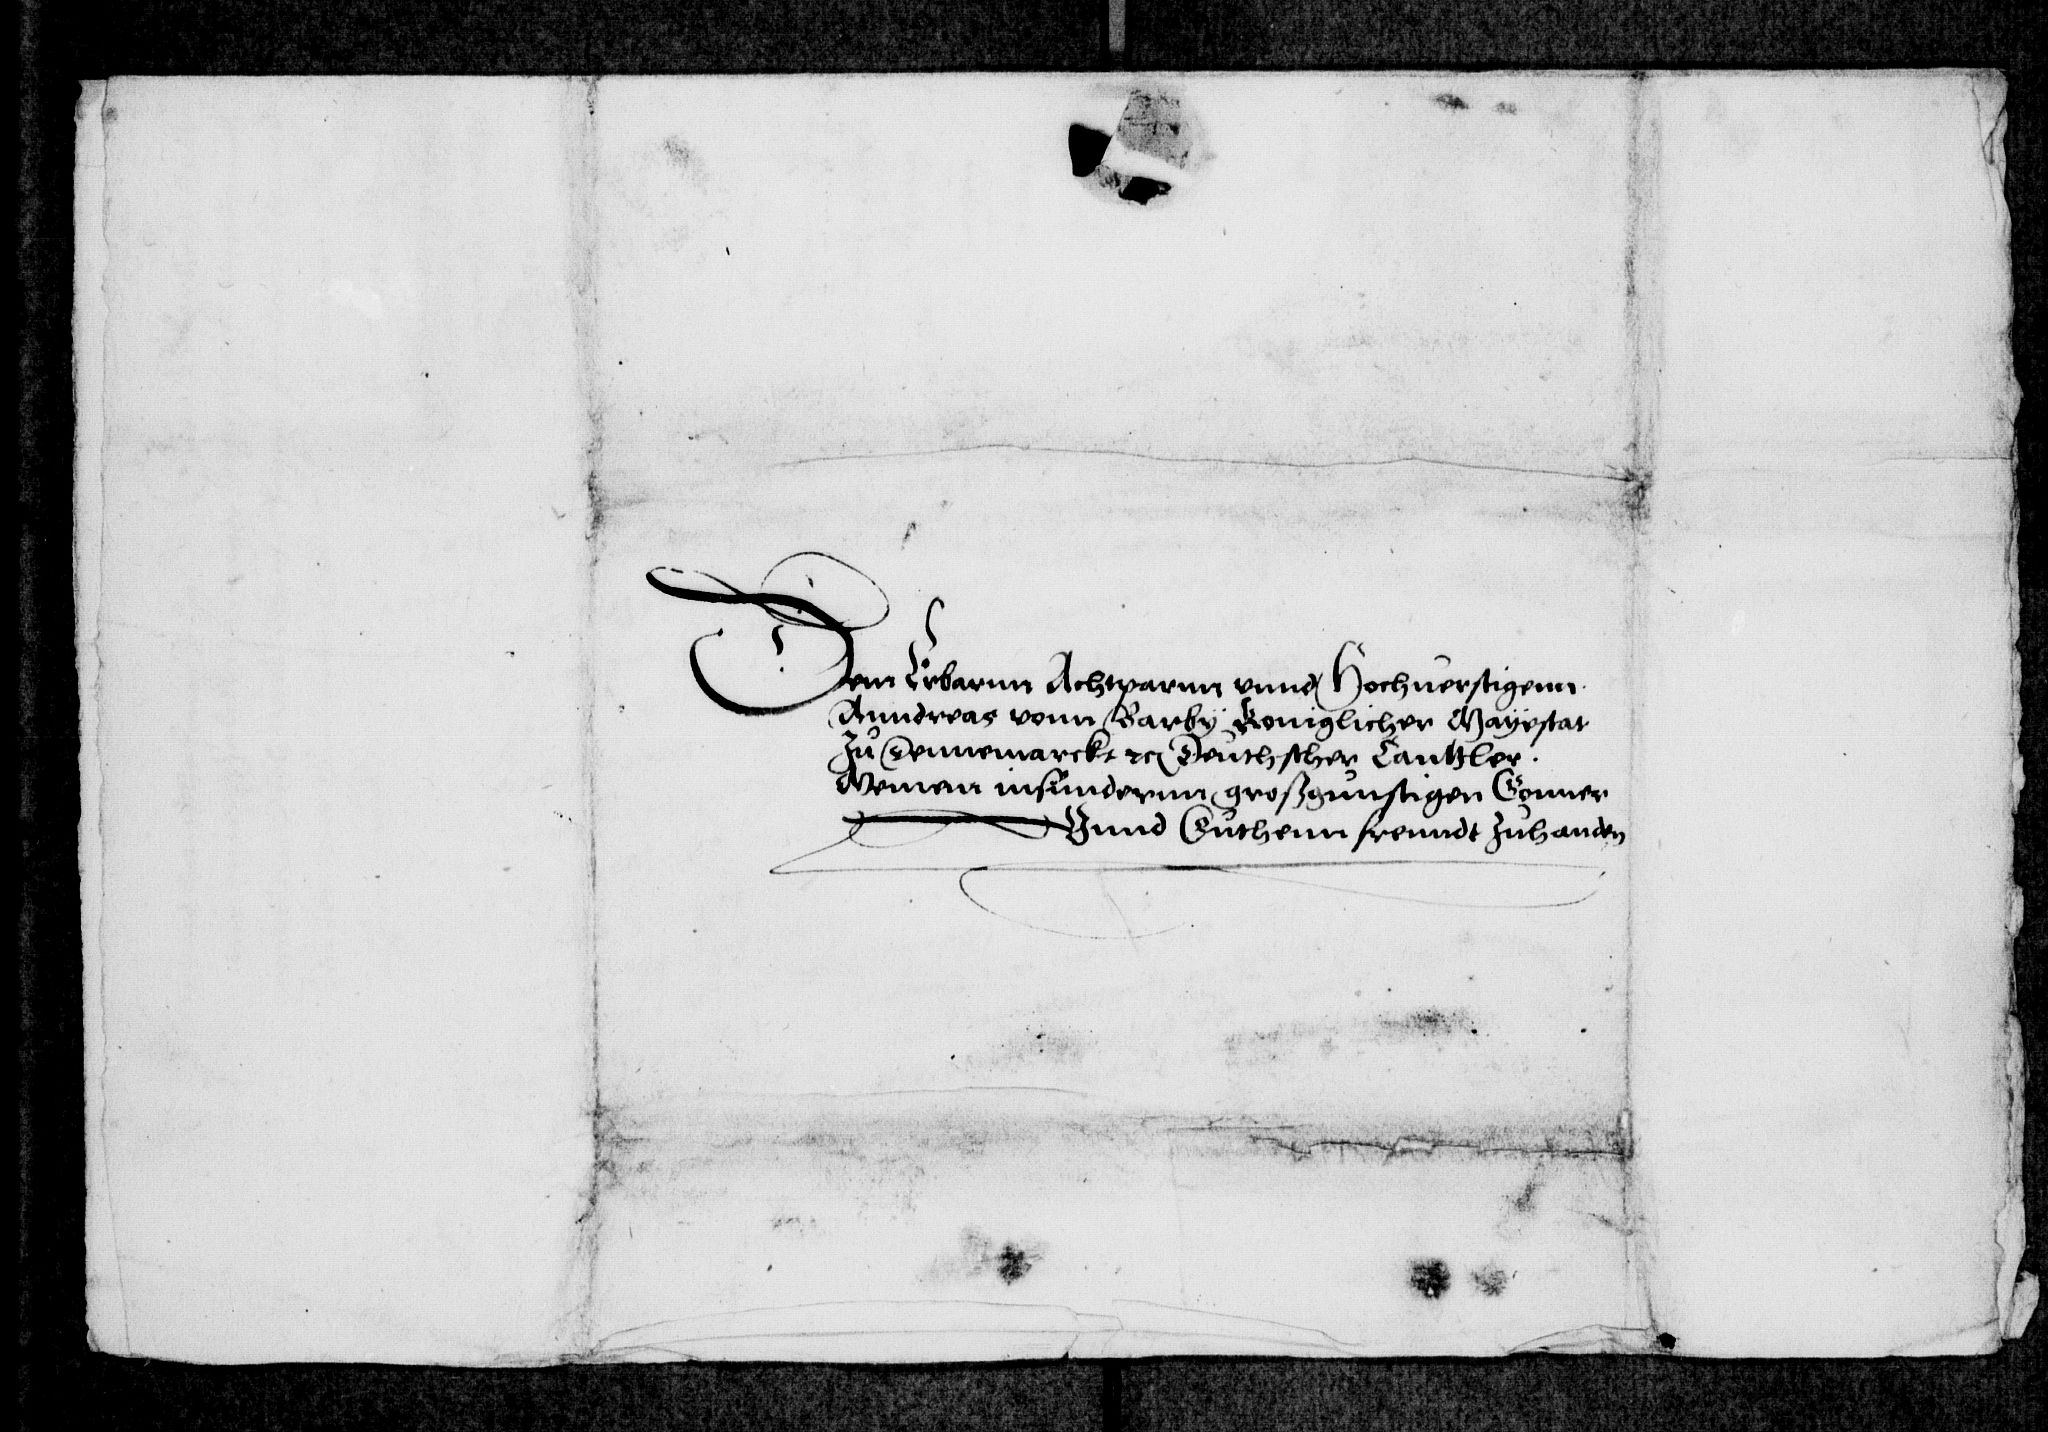 Dem Erbarnn Achtparnn vnnd Hochuerstigenn
Anndreas vonn Barby Koniglicher Mayestat
Zu Dennemarckt ꝛc Deuthscher Canttzler.
Meinem insundernn großgunstigen Gonner
Vnnd Guthenn freundt Zuhanden